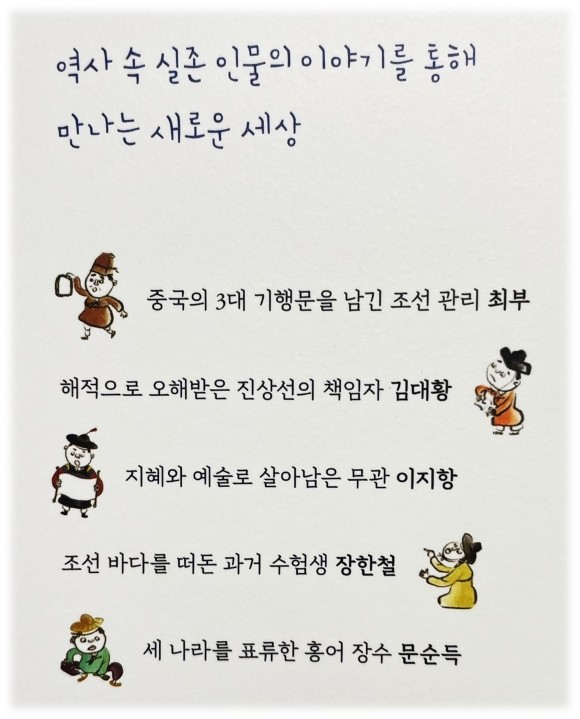 역사 속 실존 인물의 이야기를 통해
만나는 새로운 세상
중국의 3대 기행문을 남긴 조선 관리 최부
해적으로 오해받은 진상선의 책임자 김대황
지혜와 예술로 살아남은 무관 이지항
조선 바다를 떠돈 과거 수험생 장한철
세 나라를 표류한 홍어 장수 문순득